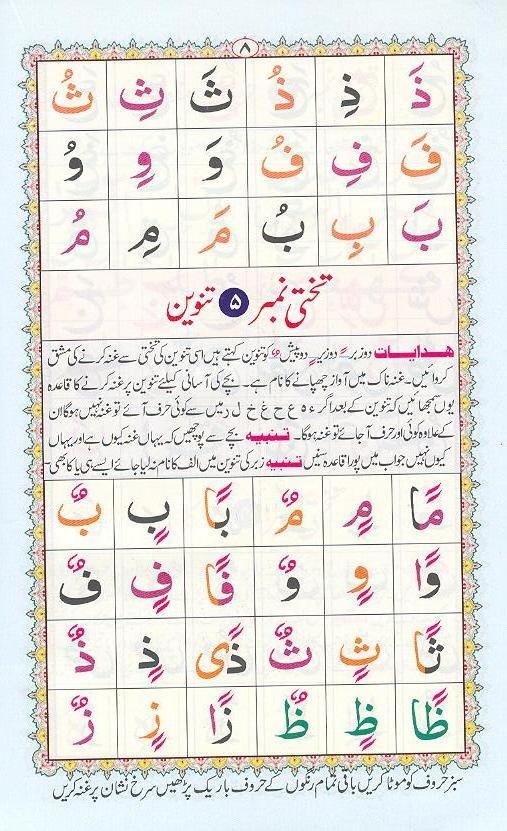 ٨
ذَ ذِ ذُ ثَ ثِ ثُ
فَ فِ فُ وَ وِ وُ
بَ بِ بُ مَ مِ مُ
تختی نمبر ۵ تنوین
ھدایات دوزبر ً دوزیر ٍ دوپیش ٌ کو تنوین کہتے ہیں اسی تنوین کی تختی سے غنہ کرنے کی مشق
کروائیں۔ غنہ ناک میں آواز چھپانے کا نام ہے۔ بچے کی آسانی کیلئے تنوین پر غنہ کرنے کا قاعدہ
یوں سمجھائیں کہ تنوین کے بعد اگر ء ہ ع ح غ خ ل ر میں سے کوئی حرف آئے تو غنہ نہیں ہوگا ان
کے علاوہ کوئی اور حرف آ جائے تو غنہ ہوگا۔ تنبیہ بچے سے پوچھیں کہ یہاں غنہ کیوں ہے اور یہاں
کیوں نہیں جواب میں پورا قاعدہ سنیں تنبیہ زبر کی تنوین میں الف کا نام نہ لیا جائے ایسے ہی یا کا بھی
مًا مٍ مٌ بًا بٍ بٌ
وًا وٍ وٌ فًا فٍ فٌ
ثًا ثٍ ثٌ ذًی ذٍ ذٌ
ظًا ظٍ ظٌ زًا زٍ زٌ
سبز حروف کو موٹا کریں باقی تمام رنگوں کے حروف باریک پڑھیں سرخ نشان پر غنہ کریں